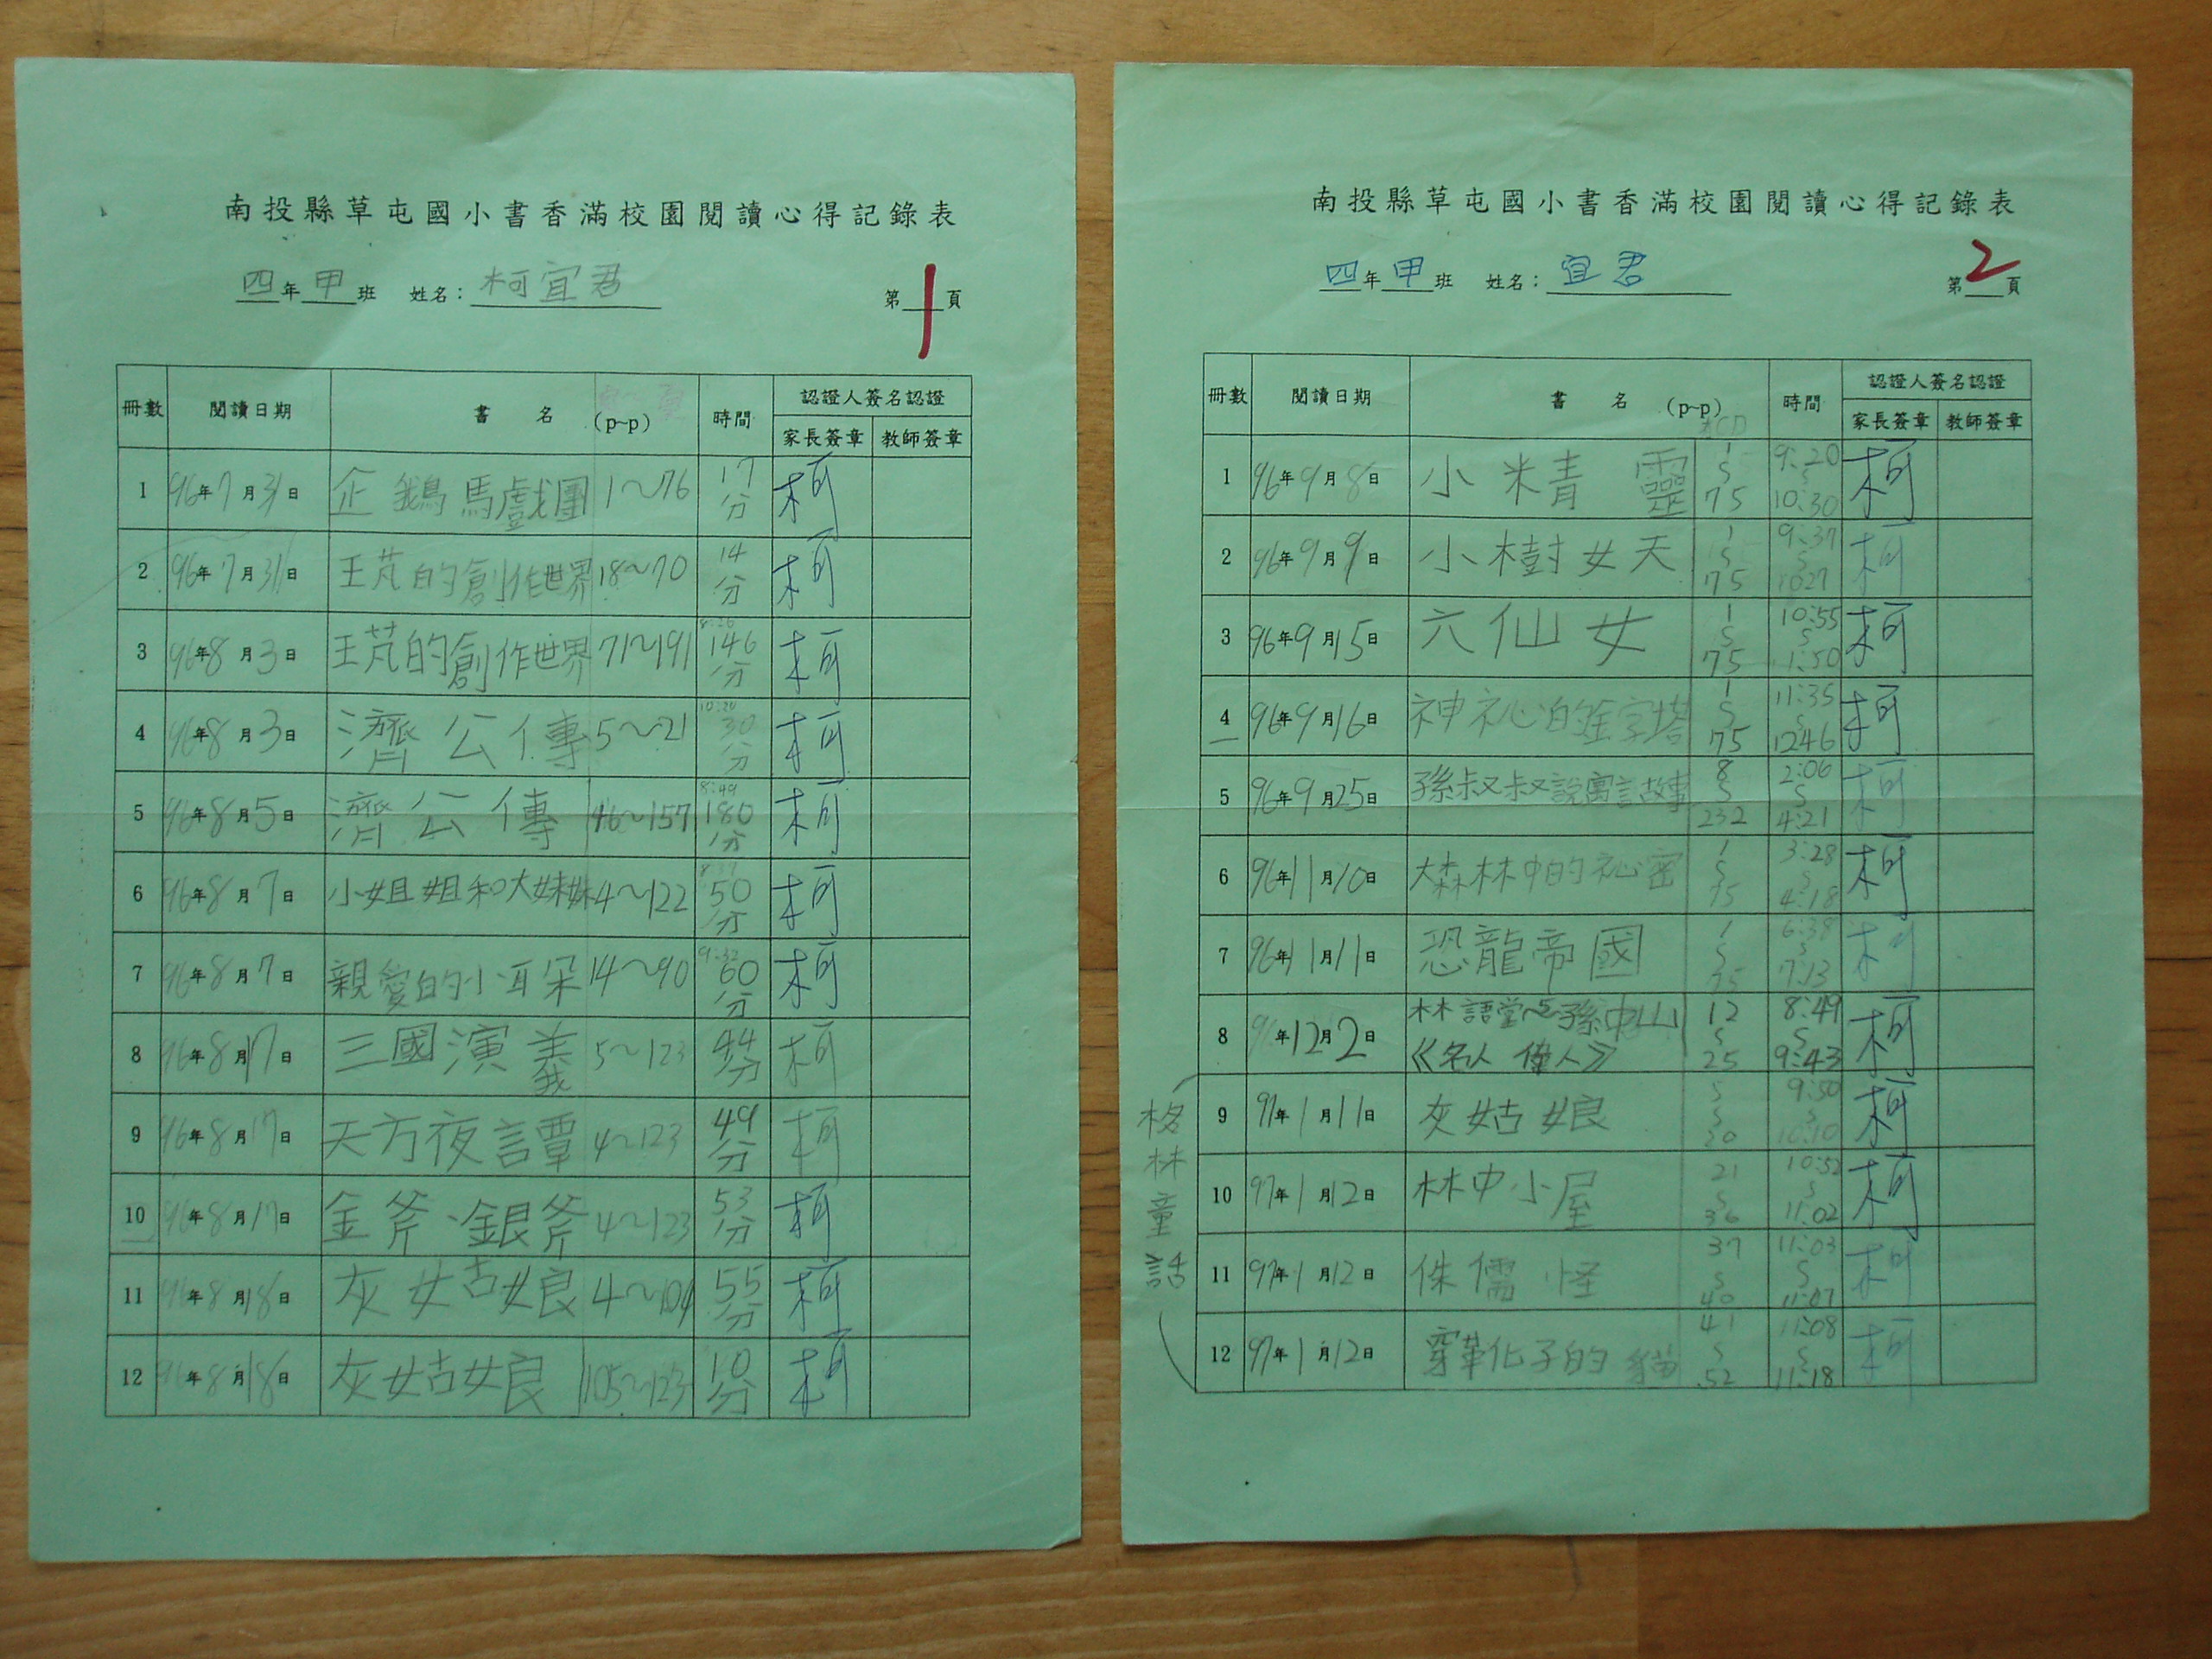 南投縣草屯國小書香滿校園閱讀心得記錄表
四年甲班 姓名：柯宜君 第1頁
冊數 閱讀日期 書名 (p~p) 時間 認證人簽名認證
家長簽章 教師簽章
1 96年7月31日 企鵝馬戲團 1～76 17分 柯
2 96年7月31日 王芃的創作世界 18～70 14分 柯
3 96年8月3日 王芃的創作世界 71～191 8:26 146分 柯
4 96年8月3日 濟公傳 5～21 10:20 30分 柯
5 96年8月5日 濟公傳 46～157 8:49 180分 柯
6 96年8月7日 小姐姐和大妹妹 4～122 50分 柯
7 96年8月7日 親愛的小耳朵 14～90 9:32 60分 柯
8 96年8月17日 三國演義 5～123 44分 柯
9 96年8月17日 天方夜譚 4～123 49分 柯
10 96年8月17日 金斧·銀斧 4～123 53分 柯
11 96年8月18日 灰姑娘 4～104 55分 柯
12 96年8月18日 灰姑娘 105～123 10分 柯
南投縣草屯國小書香滿校園閱讀心得記錄表
四年甲班 姓名：宜君 第2頁
冊數 閱讀日期 書名 (p~p) 時間 認證人簽名認證
家長簽章 教師簽章
1 96年9月8日 小精靈 1 S 75 9:20 S 10:30 柯
2 96年9月9日 小樹女天 1 S 75 9:37 S 1027 柯
3 96年9月15日 六仙女 1 S 75 10:55 S 1:50 柯
4 96年9月16日 神祕的金字塔 1 S 75 11:35 S 1246 柯
5 96年9月25日 孫叔叔說寓言故事 8 S 232 2:06 S 4:21 柯
6 96年11月10日 大森林中的祕密 1 S 75 3:28 S 4:18 柯
7 96年11月11日 恐龍帝國 1 S 75 6:38 S 7:13 柯
8 年12月2日 林語堂～孫中山 12 S 25 8:49 S 9:43 柯
《名人 偉人》
格林童話
9 97年1月11日 灰姑娘 5 S 20 9:50 S 10:10 柯
10 97年1月12日 林中小屋 21 S 36 10:52 S 11:02 柯
11 97年1月12日 侏儒怪 37 S 40 11:03 S 11:07 柯
12 97年1月12日 穿靴子的貓 41 S 52 11:08 S 11:18 柯